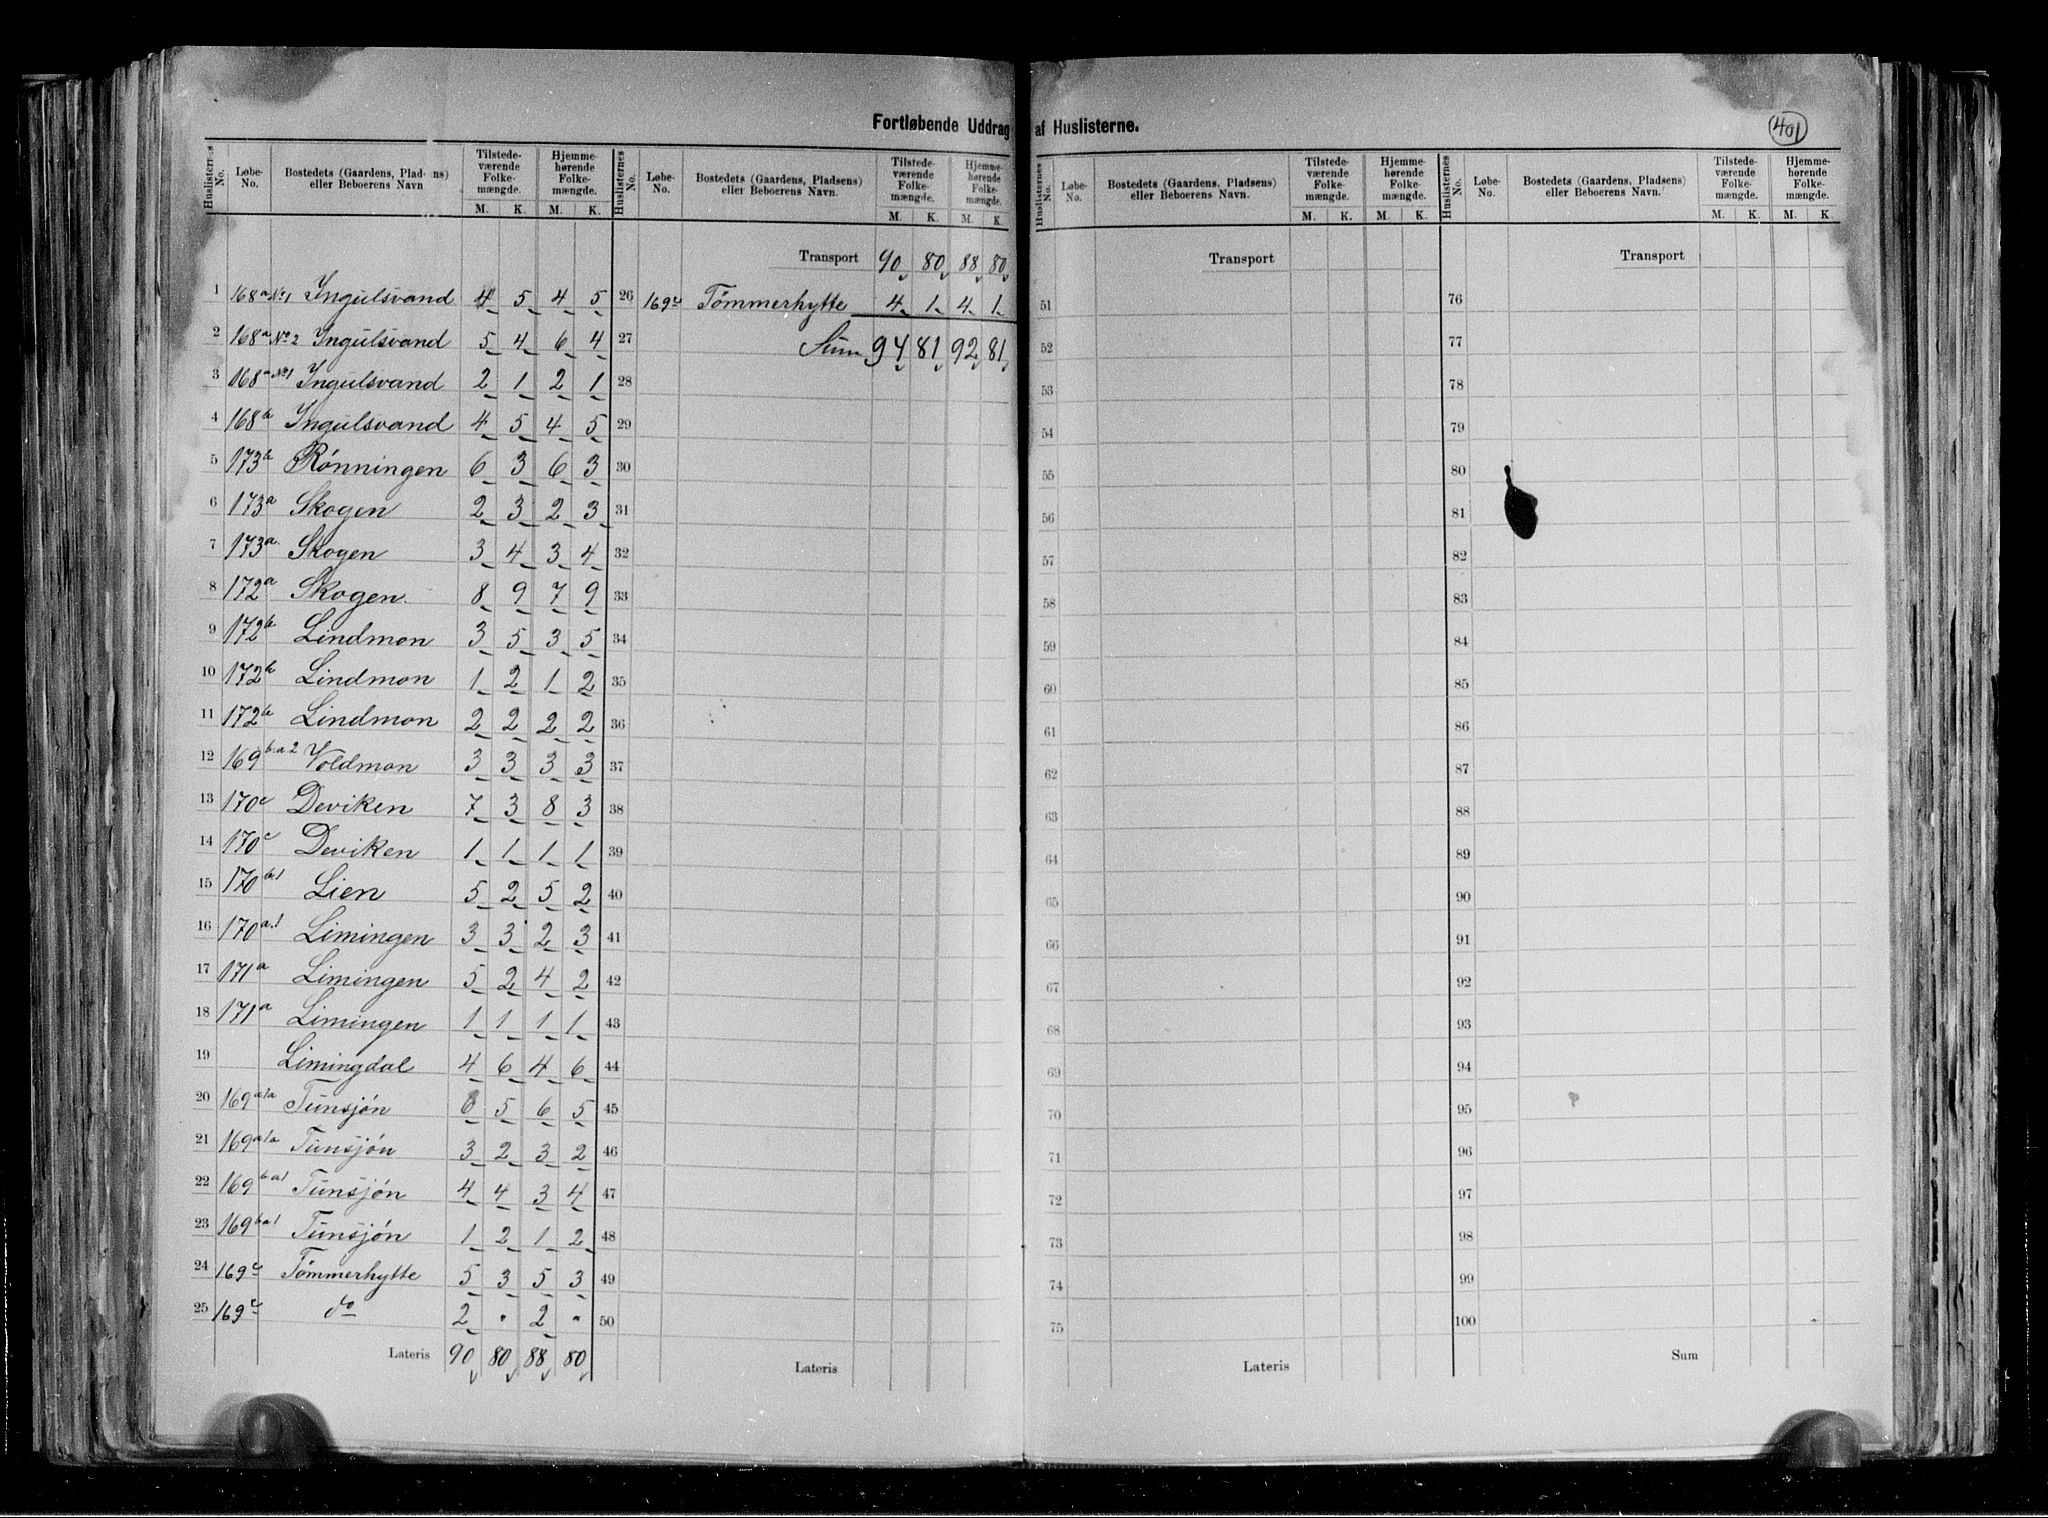 Fortløbende Uddrag af Huslisterne.
401
Huslisternes No. | Løbe-No. | Bostedets (Gaardens, Pladsens) eller Beboerens Navn | Tilstedeværende Folkemængde. M. K. | Hjemmehørende Folkemængde. M. K.
1 168a No 1 Ingulsvand 4 5 4 5
2 168a No 2 Ingulsvand 5 4 6 4
3 168a No 1 Ingulsvand 2 1 2 1
4 168b Ingulsvand 4 5 4 5
5 173b Rønningen 6 3 6 3
6 173a Skogen 2 3 2 3
7 173a. Skogen 3 4 3 4
8 172a Skogen. 8 9 7 9
9 172b Lindmon 3 5 3 5
10 172b Lindmon 1 2 1 2
11 172b Lindmon 2 2 2 2
12 169b.a2 Voldmon 3 3 3 3
13 170c Deviken 7 3 8 3
14 170c Deviken 1 1 1 1
15 170b.1 Lien 5 2 5 2
16 170a.1 Limingen 3 3 2 3
17 171a Limingen 5 2 4 2
18 171a Limingen 1 1 1 1
19 Limingdal 4 6 4 6
20 169a1a Tunsjøn 6 5 6 5
21 169a1a Tunsjøn 3 2 3 2
22 169b a1 Tunsjøn 4 4 3 4
23 169b a1 Tunsjøn 1 2 1 2
24 169c Tømmerhytte 5 3 5 3
25 169c do 2 " 2 "
Lateris 90 80 88 80
Huslisternes No. | Løbe-No. | Bostedets (Gaardens, Pladsens) eller Beboerens Navn. | Tilstedeværende Folkemængde. M. K. | Hjemmehørende Folkemængde. M. K.
Transport 90 80 88 80
26 169c Tømmerhytte 4 1 4 1
27 Sum 94 81 92 81
28
29
30
31
32
33
34
35
36
37
38
39
40
41
42
43
44
45
46
47
48
49
50
Lateris
Huslisternes No. | Løbe-No. | Bostedets (Gaardens, Pladsens) eller Beboerens Navn. | Tilstedeværende Folkemængde. M. K. | Hjemmehørende Folkemængde. M. K.
Transport
51
52
53
54
55
56
57
58
59
60
61
62
63
64
65
66
67
68
69
70
71
72
73
74
75
Lateris
Huslisternes No. | Løbe-No. | Bostedets (Gaardens, Pladsens) eller Beboerens Navn. | Tilstedeværende Folkemængde. M. K. | Hjemmehørende Folkemængde. M. K.
Transport
76
77
78
79
80
81
82
83
84
85
86
87
88
89
90
91
92
93
94
95
96
97
98
99
100
Sum